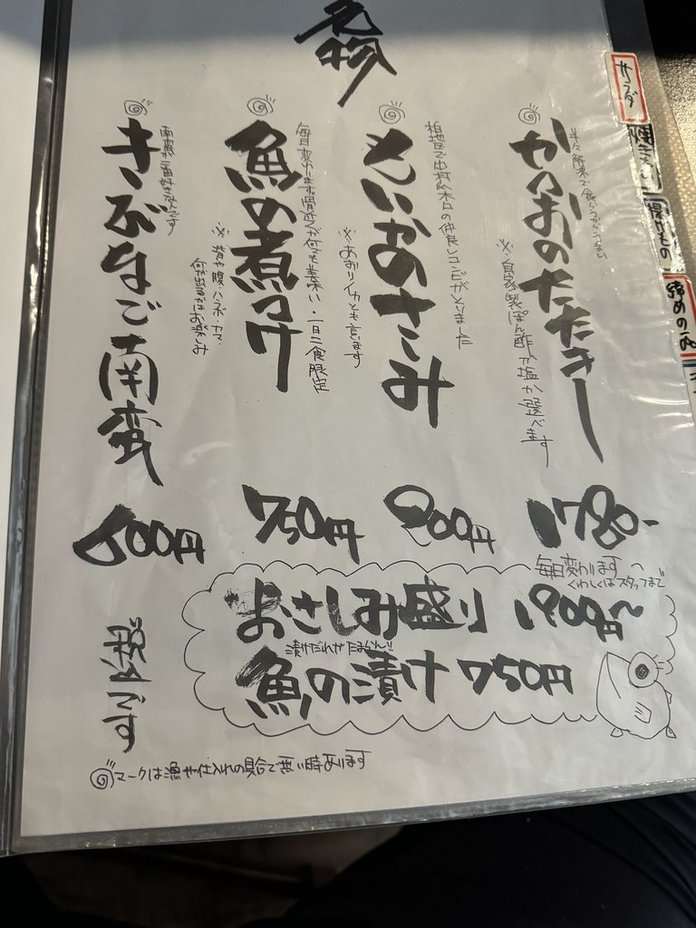 名物
かつおのたたきー
※自家製ぽん酢か塩か選べます
1780-
もいかのさしみ
※あおりイカとも言います
魚の煮つけ
一日二食限定
※背や腹・ハラボ・カマ・
何が出るかはお楽しみ
750円
きびなご南蛮
600円
毎日変わります〜
くわしくはスタッフまで
おさしみ盛り 1900円〜
漬けだれがたまらん!!
魚の漬け 750円
マークは漁や仕入れの具合で無い時あります
サラダ
揚げもの
締めの品